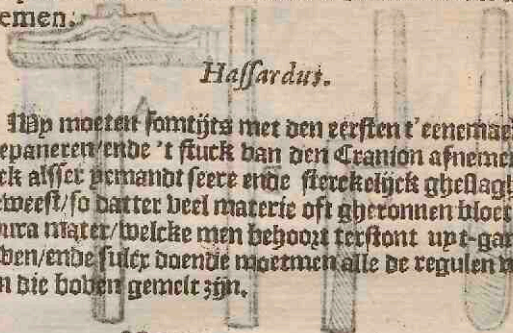 emen.
Hassardus.
Wy moeten somtijts met den eersten t'eenemael
epaneren/ende 't stuck van den Cranion afnemen
ck alsser yemandt seere ende sterckelijck gheslagh
eweest/so datter veel materie oft gheronnen bloet
ura mater/welcke men behoort terstont uyt-gar
ven/ende sulcx doende moetmen alle de regulen
n die boven gemelt zijn.